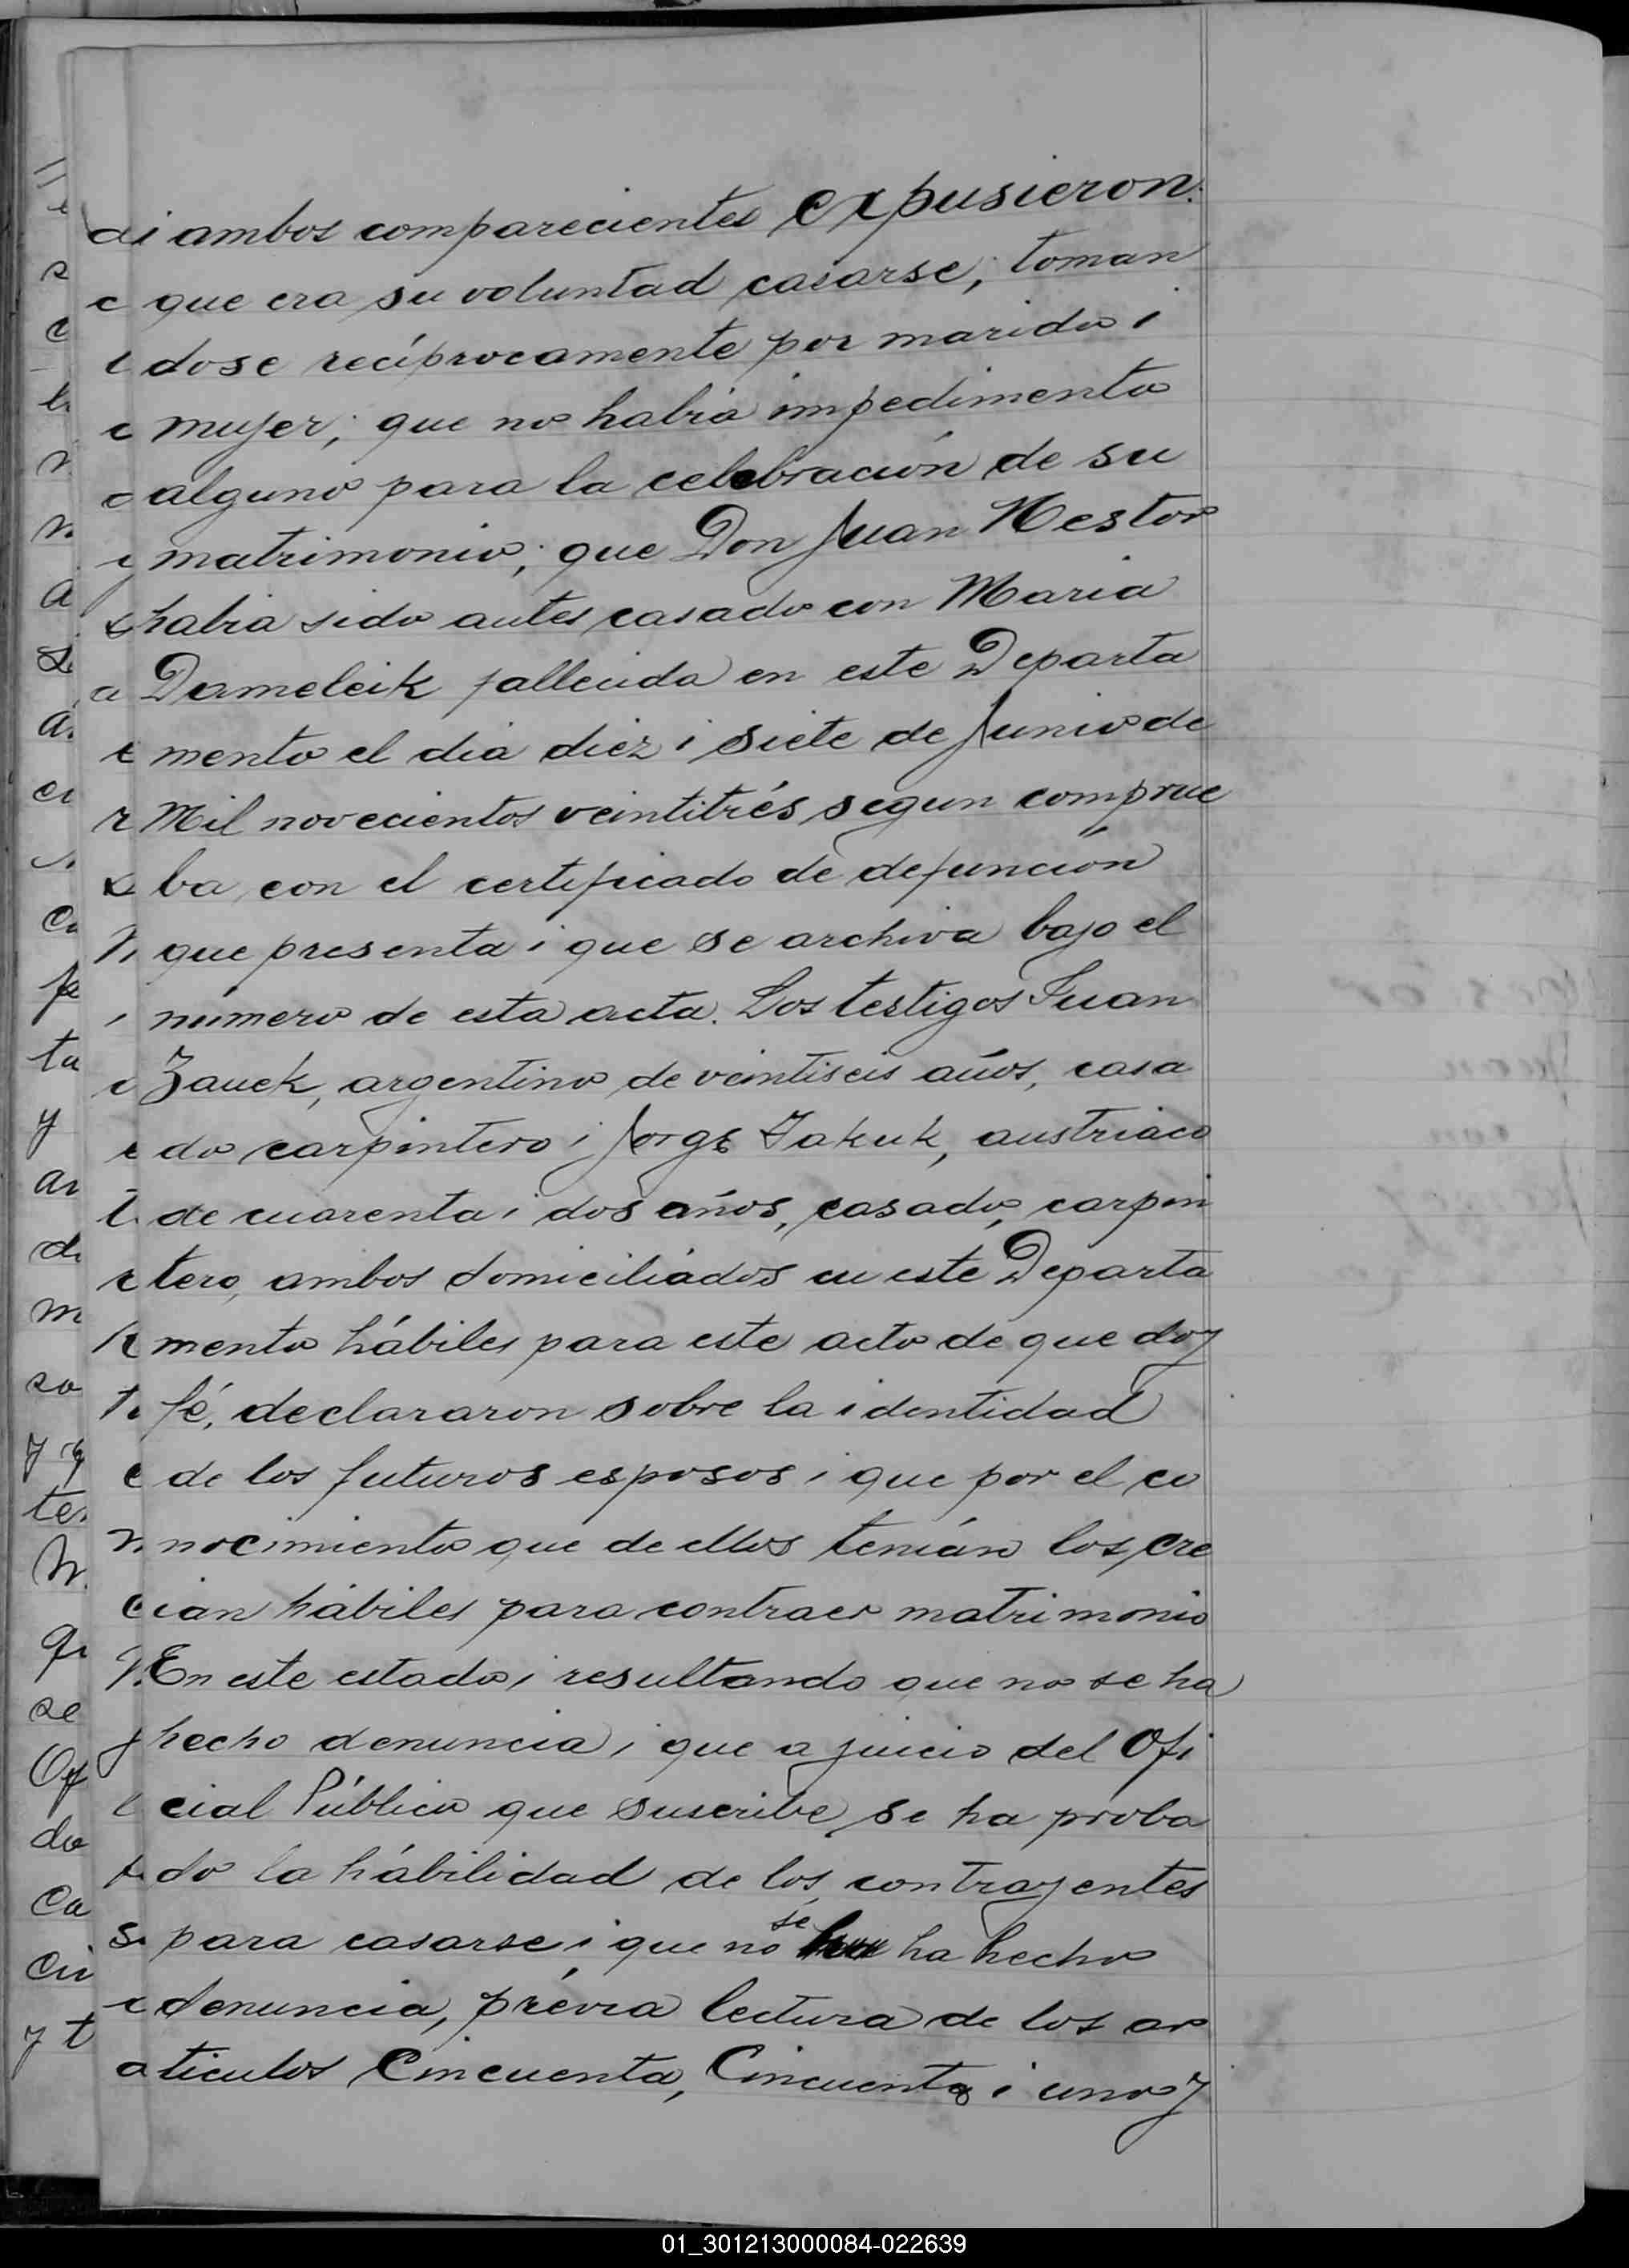 i ambos comparecientes expusieron:
que era su voluntad casarse, toman
dose recíprocamente por marido i
mujer; que no habia impedimento
alguno para la celebración de su
matrimonio; que Don Juan Nestor
habia sido antes casado con Maria
Dameleik fallecida en este Departa
mento el dia diez i siete de Junio de
Mil novecientos veintitrés segun comprue
ba con el certificado de defunción
que presenta i que se archiva bajo el
número de esta acta. Los testigos Juan
Zauek, argentino de veintiseis años, casa
do carpintero i Jorge Iakuk, austriaco
de cuarenta i dos años, casado, carpin
tero, ambos domiciliados en este Departa
mento hábiles para este acto de que doy
fé, declararon sobre la identidad
de los futuros esposos i que por el co
nocimiento que de ellos tenían los cre
cian hábiles para contraer matrimonio
En este estado i resultando que no se ha
hecho denuncia i que a juicio del Ofi
cial Público que suscribe se ha proba
do la hábilidad de los contrayentes
para casarse i que no se ha hecho
denuncia, prévia lectura de los ar
ticulos Cincuenta, Cincuenta i uno y
01_301213000084-022639